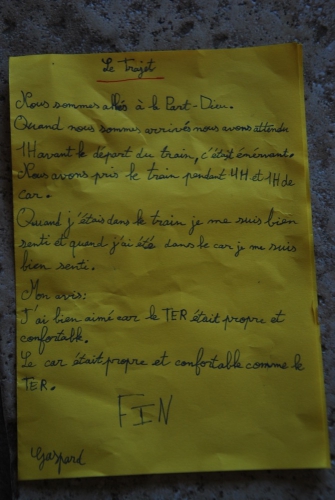 Le Trajet
Nous sommes allés à la Part-Dieu.
Quand nous sommes arrivés nous avons attendu
1H avant le départ du train, c'était énervant.
Nous avons pris le train pendant 4H et 1H de
car.
Quand j'étais dans le train je me suis bien
senti et quand j'ai été dans le car je me suis
bien senti.
Mon avis:
J'ai bien aimé car le TER était propre et
confortable.
Le car était propre et confortable comme le
TER.
FIN
Gaspard